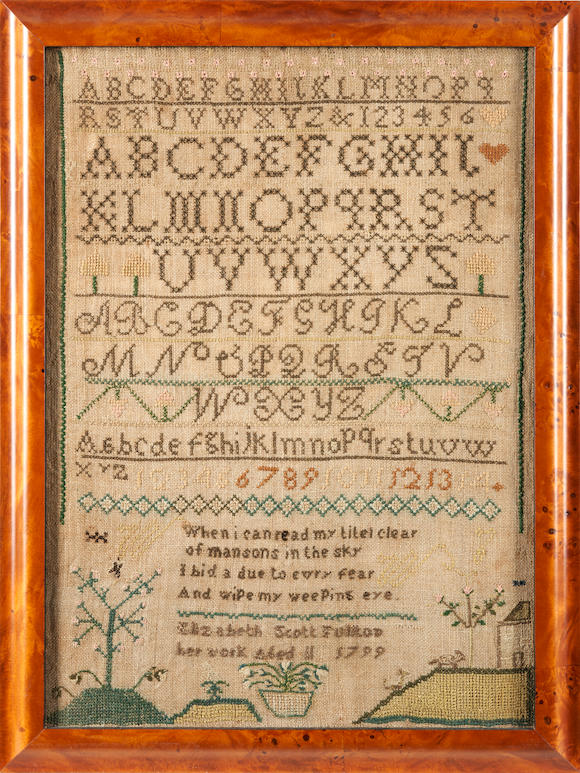 A B C D E F G H I J K L M N O P q
R S T U V W X Y Z & 1 2 3 4 5 6
A B C D E F G H I J
K L M N O P q R S T
U V W X Y Z
A B C D E F G H I K L
M N O P Q R S T V
W X Y Z
A a b c d e f g h i j k l m n o p q r s t u v w
X Y Z 1 2 3 4 5 6 7 8 9 10 11 12 13 14
When i can read my titel clear
of mansons in the sky
I bid a due to evry fear
And wipe my weeping eye.
Elizabeth Scott Fulton
her work aged 11 1799